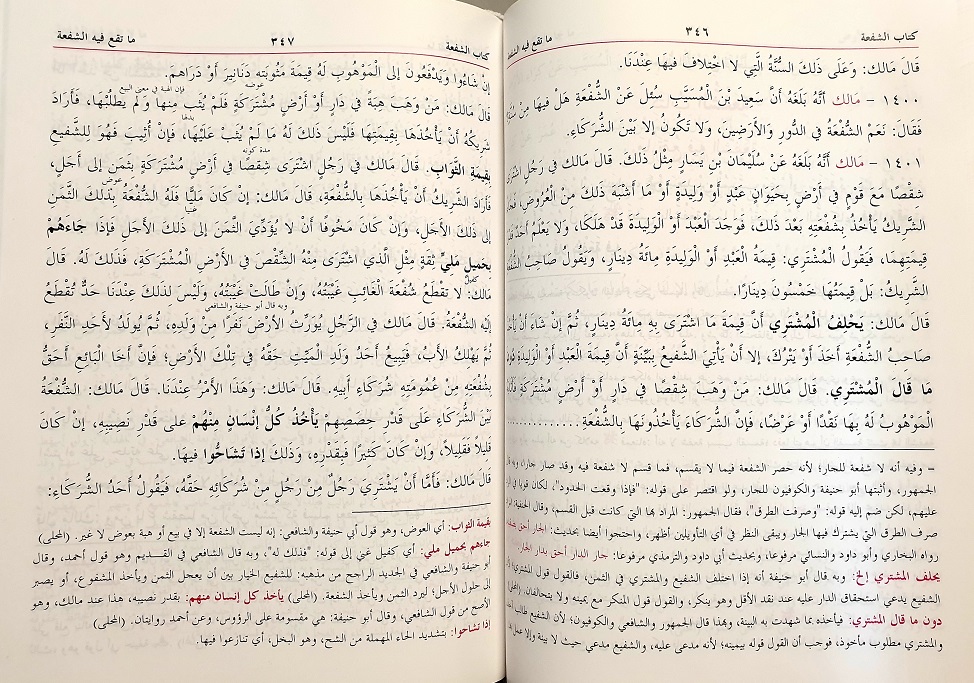 كتاب الشفعة ٣٤٦ ما تقع فيه الشفعة
قَالَ مَالك: وَعَلَى ذَلكَ السُّنَّةُ الَّتِي لا اخْتِلافَ فيهَا عِنْدَنَا.
١٤٠٠ - مَالك أنَّهُ بَلَغَهُ أنَّ سَعِيدَ بْنَ الْمُسَيَّبِ سُئِلَ عَنْ الشُّفْعَةِ هَلْ فيهَا مِنْ سُنَّةٍ
فَقَالَ: نَعَمْ الشُّفْعَةُ في الدُّورِ وَالأَرَضِينَ، وَلا تَكُونُ إلا بَيْنَ الشُّرَكَاءِ.
١٤٠١ - مَالك أنَّهُ بَلَغَهُ عَنْ سُلَيْمَانَ بْنِ يَسَارٍ مِثْلُ ذَلكَ. قَالَ مَالك في رَجُلٍ اشْتَرَى
شِقْصًا مَعَ قَوْمٍ في أرْضٍ بِحَيَوَانٍ عَبْدٍ أوْ وَلِيدَةٍ أوْ مَا أشْبَهَ ذَلكَ منْ الْعُرُوضِ،
الشَّرِيكُ يَأْخُذُ بِشُفْعَتِهِ بَعْدَ ذَلكَ، فَوَجَدَ الْعَبْدَ أوْ الْوَلِيدَةَ قَدْ هَلَكَا، وَلا يَعْلَمُ أحَدٌ
قِيمَتِهِمَا، فَيَقُولُ الْمُشْتَرِي: قِيمَةُ الْعَبْدِ أوْ الْوَلِيدَةِ مِائَةُ دِينَارٍ، وَيَقُولُ صَاحِبُ
الشَّرِيكُ: بَلْ قِيمَتُهَا خَمْسُونَ دِينَارًا.
قَالَ مَالك: يَحْلِفُ الْمُشْتَرِي أنَّ قِيمَةَ مَا اشْتَرَى بِهِ مِائَةُ دِينَارٍ، ثُمَّ إنْ شَاءَ أنْ
صَاحبُ الشُّفْعَةِ أخَذَ أوْ يَتْرُكَ، إلا أنْ يَأْتِيَ الشَّفيعُ بِبَيِّنَةٍ أنَّ قِيمَةَ الْعَبْدِ أوْ الْوَلِيدَةِ
مَا قَالَ الْمُشْتَرِي. قَالَ مَالك: مَنْ وَهَبَ شِقْصًا في دَارٍ أوْ أرْضٍ مُشْتَرَكَةٍ
الْمَوْهُوبُ لَهُ بِهَا نَقْدًا أوْ عَرْضًا، فَإنَّ الشُّرَكَاءَ يَأْخُذُونَهَا بِالشُّفْعَةِ............
- وفيه أنه لا شفعة للجار؛ لأنه حصر الشفعة فيما لا يقسم، فما قسم لا شفعة فيه وقد صار جارا،
الجمهور، وأثبتها أبو حنيفة والكوفيون للجار، ولو اقتصر على قوله: "فإذا وقعت الحدود"، لكان
عليهم، لكن ضم إليه قوله: "وصرفت الطرق"، فقال الجمهور: المراد بها التي كانت قبل القسم، وقال
صرف الطرق التي يشترك فيها الجار ويبقى النظر في أي التأويلين أظهر، واحتجوا أيضا بحديث: الجار أحق
رواه البخاري وأبو داود والنسائي مرفوعا، وبحديث أبي داود والترمذي مرفوعا: جار الدار أحق بدار الجار.
يحلف المشتري إلخ: وبه قال أبو حنيفة أنه إذا اختلف الشفيع والمشتري في الثمن، فالقول قول المشتري؛
الشفيع يدعي استحقاق الدار عليه عند نقد الأقل وهو ينكر، والقول قول المنكر مع يمينه ولا يتحالفان.
دون ما قال المشتري: فيأخذه بما شهدت به البينة، وبهذا قال الجمهور والشافعي والكوفيون؛ لأن الشفيع طالب
والمشتري مطلوب مأخوذ، فوجب أن القول قوله بيمينه؛ لأنه مدعى عليه، والشفيع مدعي حيث لا بينة
كتاب الشفعة ٣٤٧ ما تقع فيه الشفعة
إنْ شَاءُوا وَيَدْفَعُونَ إلَى الْمَوْهُوبِ لَهُ قِيمَةَ مَثُوبَتِهِ دَنَانِيرَ أوْ دَرَاهِمَ.
عوضه
فإن الهبة في معنى البيع
قَالَ مَالك: مَنْ وَهَبَ هِبَةً في دَارٍ أوْ أرْضٍ مُشْتَرَكَةٍ فَلَمْ يُثَبْ مِنهَا وَلَمْ يَطْلُبْهَا، فَأرَادَ
شَرِيكُهُ أنْ يَأْخُذَهَا بِقِيمَتِهَا فَلَيْسَ ذَلكَ لَهُ مَا لَمْ يُثَبْ عَلَيْهَا، فَإنْ أُثِيبَ فَهُوَ لِلشَّفيعِ
مدة كونه
بِقِيمَةِ الثَّوَابِ. قَالَ مَالك في رَجُلٍ اشْتَرَى شِقْصًا في أرْضٍ مُشْتَرَكَةٍ بِثَمَنٍ إلى أجَلٍ،
فَأرَادَ الشَّرِيكُ أنْ يَأْخُذَهَا بِالشُّفْعَةِ، قَالَ مَالك: إنْ كَانَ مَلِيًّا فَلَهُ الشُّفْعَةُ بِذَلكَ الثَّمَنِ
إلى ذَلكَ الأَجَلِ، وَإنْ كَانَ مَخُوفًا أنْ لا يُؤَدِّيَ الثَّمَنَ إلى ذَلكَ الأَجَلِ فَإذَا جَاءَهُمْ
بِحَمِيلٍ مَلِيٍّ ثِقَةٍ مِثْلِ الَّذي اشْتَرَى مِنْهُ الشِّقْصَ في الأرْضِ الْمُشْتَرَكَةِ، فَذَلكَ لَهُ. قَالَ
مَالك: لا تَقْطَعُ شُفْعَةَ الْغَائِبِ غَيْبَتُهُ، وَإنْ طَالَتْ غَيْبَتُهُ، وَلَيْسَ لذَلكَ عِنْدَنَا حَدٌّ تُقْطَعُ
وبه قال أبو حنيفة والشافعي
إلَيْهِ الشُّفْعَةُ. قَالَ مَالك في الرَّجُلِ يُوَرِّثُ الأَرْضَ نَفَرًا مِنْ وَلَدِهِ، ثُمَّ يُولَدُ لأَحَدِ النَّفَرِ،
ثُمَّ يَهْلِكُ الأَبُ، فَيَبِيعُ أحَدُ وَلَدِ الْمَيِّتِ حَقَّهُ في تِلْكَ الأَرْضِ؛ فَإنَّ أخَا الْبَائِعِ أحَقُّ
بِشُفْعَتِهِ مِنْ عُمُومَتِهِ شُرَكَاءِ أبِيهِ. قَالَ مَالك: وَهَذَا الأَمْرُ عِنْدَنَا. قَالَ مَالك: الشُّفْعَةُ
بَيْنَ الشُّرَكَاءِ عَلَى قَدْرِ حِصَصِهِمْ يَأْخُذُ كُلُّ إنْسَانٍ مِنْهُمْ على قَدْرِ نَصِيبِهِ، إنْ كَانَ
قَلِيلًا فَقَلِيلًا، وَإنْ كَانَ كَثِيرًا فَبِقَدْرِهِ، وَذَلكَ إذَا تَشَاحُّوا فيهَا.
قَالَ مَالك: فَأمَّا أنْ يَشْتَرِيَ رَجُلٌ مِنْ رَجُلٍ مِنْ شُرَكَائِهِ حَقَّهُ، فَيَقُولُ أحَدُ الشُّرَكَاءِ:
بقيمة الثواب: أي العوض، وهو قول أبي حنيفة والشافعي: إنه ليست الشفعة إلا في بيع أو هبة بعوض لا غير. (المحلى)
جاءهم بحميل ملي: أي كفيل غني إلى قوله: "فذلك له"، وبه قال الشافعي في القديم وهو قول أحمد، وقال
أبو حنيفة والشافعي في الجديد الراجح من مذهبه: للشفيع الخيار بين أن يعجل الثمن ويأخذ المشفوع، أو يصبر
إلى حلول الأجل؛ ليرد الثمن ويأخذ الشفعة. (المحلى) يأخذ كل إنسان منهم: بقدر نصيبه، هذا عند مالك، وهو
الأصح من قول الشافعي، وقال أبو حنيفة: هي مقسومة على الرؤوس، وعن أحمد روايتان. (المحلى)
إذا تشاحوا: بتشديد الحاء المهملة من الشح، وهو البخل، أي تنازعوا فيها.